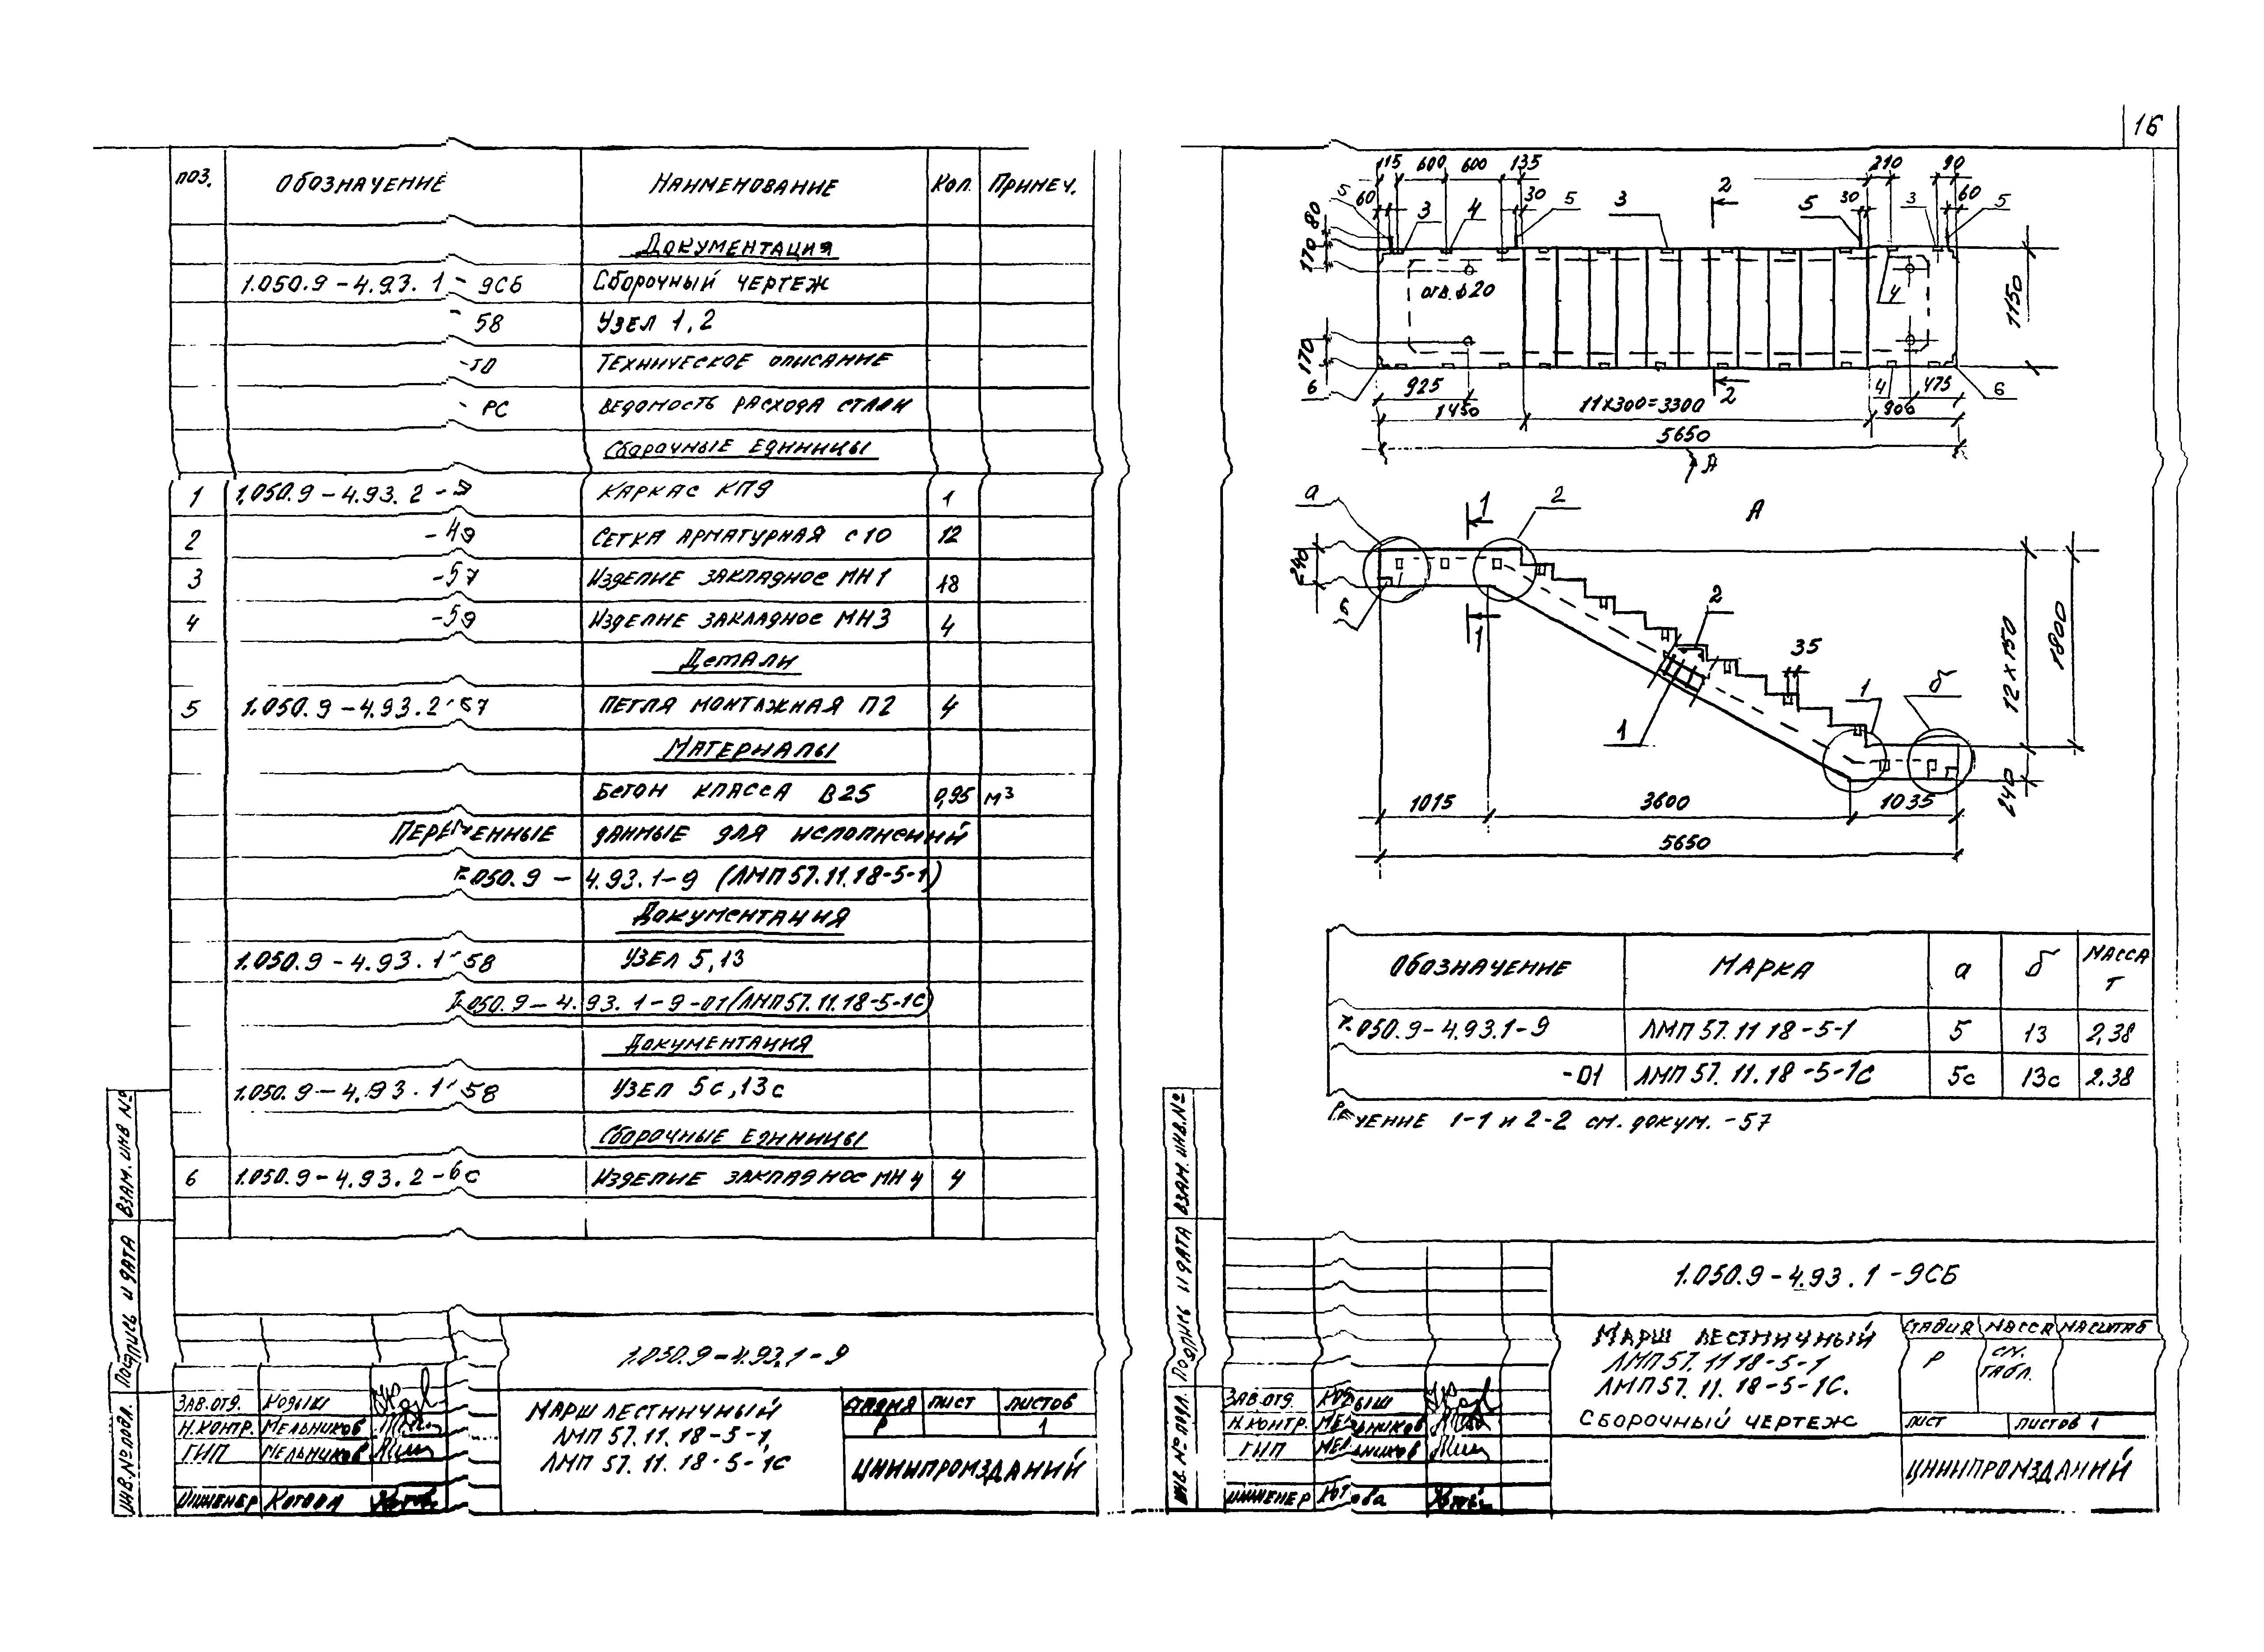 ПОЗ. ОБОЗНАЧЕНИЕ НАИМЕНОВАНИЕ КОЛ. ПРИМЕЧ.
ДОКУМЕНТАЦИЯ
1.050.9-4.93.1-9СБ СБОРОЧНЫЙ ЧЕРТЕЖ
-58 УЗЕЛ 1,2
-ТО ТЕХНИЧЕСКОЕ ОПИСАНИЕ
-РС ВЕДОМОСТЬ РАСХОДА СТАЛИ
СБОРОЧНЫЕ ЕДИНИЦЫ
1 1.050.9-4.93.2-9 КАРКАС КП9 1
2 -49 СЕТКА АРМАТУРНАЯ С10 12
3 -57 ИЗДЕЛИЕ ЗАКЛАДНОЕ МН1 18
4 -59 ИЗДЕЛИЕ ЗАКЛАДНОЕ МН3 4
ДЕТАЛИ
5 1.050.9-4.93.2-67 ПЕТЛЯ МОНТАЖНАЯ П2 4
МАТЕРИАЛЫ
БЕТОН КЛАССА В25 0,95 м³
ПЕРЕМЕННЫЕ ДАННЫЕ ДЛЯ ИСПОЛНЕНИЙ
1.050.9-4.93.1-9 (ЛМП57.11.18-5-1)
ДОКУМЕНТАЦИЯ
1.050.9-4.93.1-58 УЗЕЛ 5,13
1.050.9-4.93.1-9-01 (ЛМП57.11.18-5-1С)
ДОКУМЕНТАЦИЯ
1.050.9-4.93.1-58 УЗЕЛ 5с,13с
СБОРОЧНЫЕ ЕДИНИЦЫ
6 1.050.9-4.93.2-60 ИЗДЕЛИЕ ЗАКЛАДНОЕ МН4 4
ИНВ.№ПОДЛ. ПОДПИСЬ И ДАТА ВЗАМ.ИНВ №
1.050.9-4.93.1-9
ЗАВ.ОТД. КОДЫШ
Н.КОНТР. МЕЛЬНИКОВ
ГИП МЕЛЬНИКОВ
ИНЖЕНЕР КОТОВА
МАРШ ЛЕСТНИЧНЫЙ
ЛМП 57.11.18-5-1,
ЛМП 57.11.18-5-1С
СТАДИЯ ЛИСТ ЛИСТОВ
Р 1
ЦНИИПРОМЗДАНИЙ
16
115 600 600 135 210 90
5 60 30 5 3 2 5 30 3 60 5
80 3 4
170
ОТВ.ф20 4 1150
170
6 925 2 4 475 6
1450 11х300=3300 900
5650
А
а 1 2 А
240
6 1 2 35
12х150 1800
1 1 б
1015 3600 1035 240
5650
ОБОЗНАЧЕНИЕ МАРКА а б МАССА Т
1.050.9-4.93.1-9 ЛМП57.11 18-5-1 5 13 2,38
-01 ЛМП57.11.18-5-1С 5с 13с 2.38
СЕЧЕНИЕ 1-1 и 2-2 см. докум. -57
ИНВ.№ПОДЛ. ПОДПИСЬ И ДАТА ВЗАМ.ИНВ.№
1.050.9-4.93.1-9СБ
ЗАВ.ОТД. КОДЫШ
Н.КОНТР. МЕЛЬНИКОВ
ГИП МЕЛЬНИКОВ
ИНЖЕНЕР КОТОВА
МАРШ ЛЕСТНИЧНЫЙ
ЛМП57.11 18-5-1
ЛМП57.11.18-5-1С.
СБОРОЧНЫЙ ЧЕРТЕЖ
СТАДИЯ МАССА МАСШТАБ
Р СМ. ТАБЛ.
ЛИСТ ЛИСТОВ 1
ЦНИИПРОМЗДАНИЙ